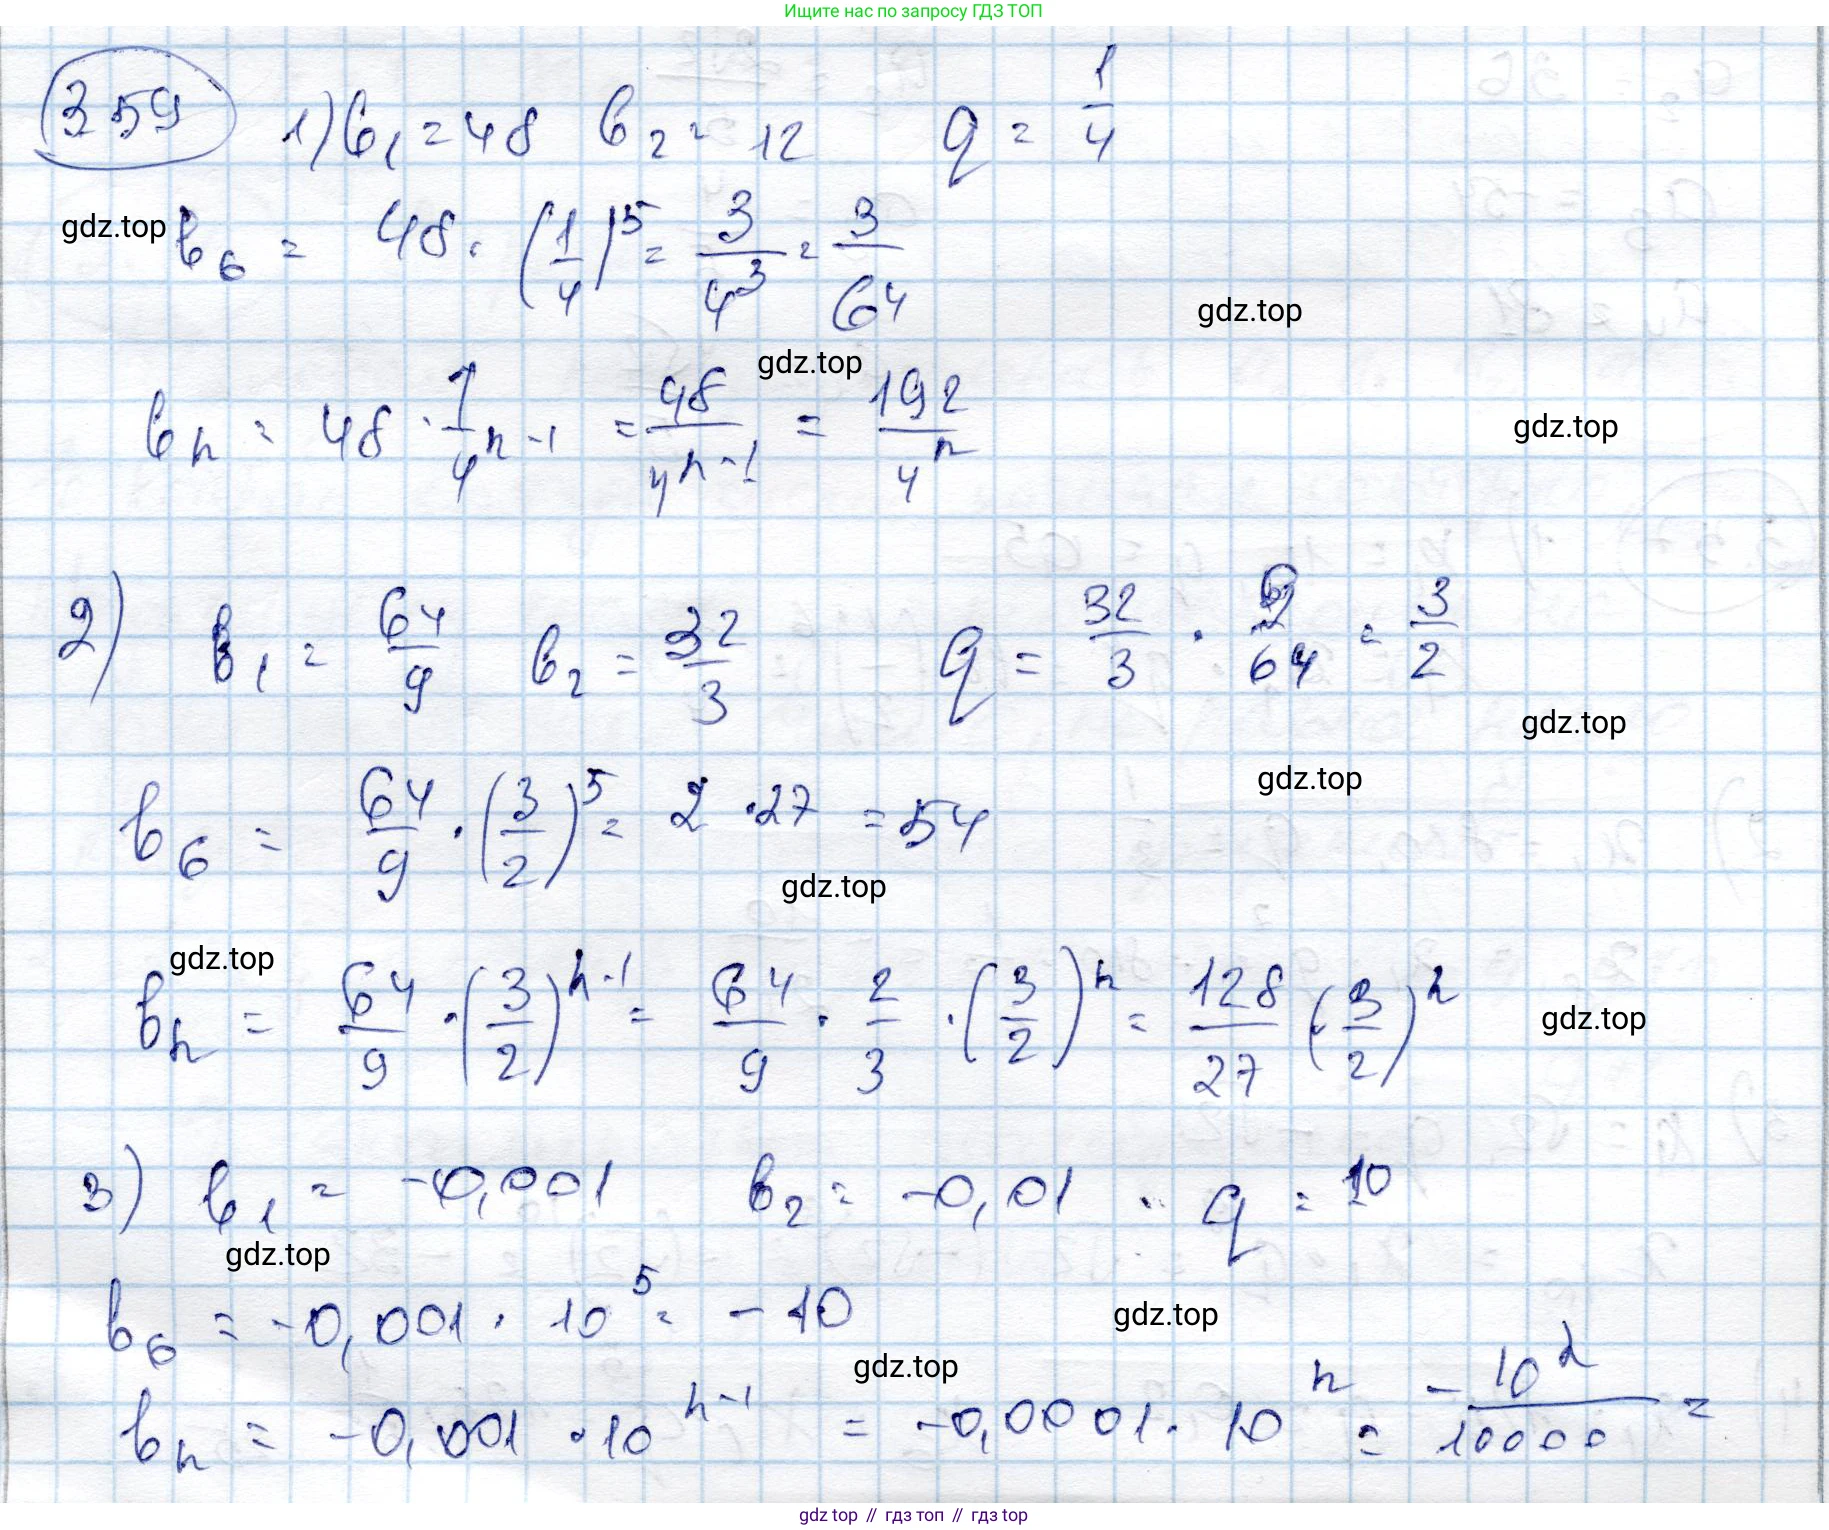 Ищите нас по запросу ГДЗ ТОП
359 1) b₁ = 48 b₂ = 12 q = 1/4
gdz.top
b₆ = 48 · (1/4)⁵ = 3/4³ = 3/64
gdz.top
gdz.top
bₙ = 48 · 1/4ⁿ⁻¹ = 48/4ⁿ⁻¹ = 192/4ⁿ
gdz.top
2) b₁ = 64/9 b₂ = 32/3 q = 32/3 · 9/64 = 3/2
gdz.top
gdz.top
b₆ = 64/9 · (3/2)⁵ = 2 · 27 = 54
gdz.top
gdz.top
bₙ = 64/9 · (3/2)ⁿ⁻¹ = 64/9 · 2/3 · (3/2)ⁿ = 128/27 (3/2)ⁿ
gdz.top
3) b₁ = -0,001 b₂ = -0,01 q = 10
gdz.top
b₆ = -0,001 · 10⁵ = -10
gdz.top
gdz.top
bₙ = -0,001 · 10ⁿ⁻¹ = -0,0001 · 10ⁿ = -10²/10000 =
gdz.top // гдз топ // гдз top